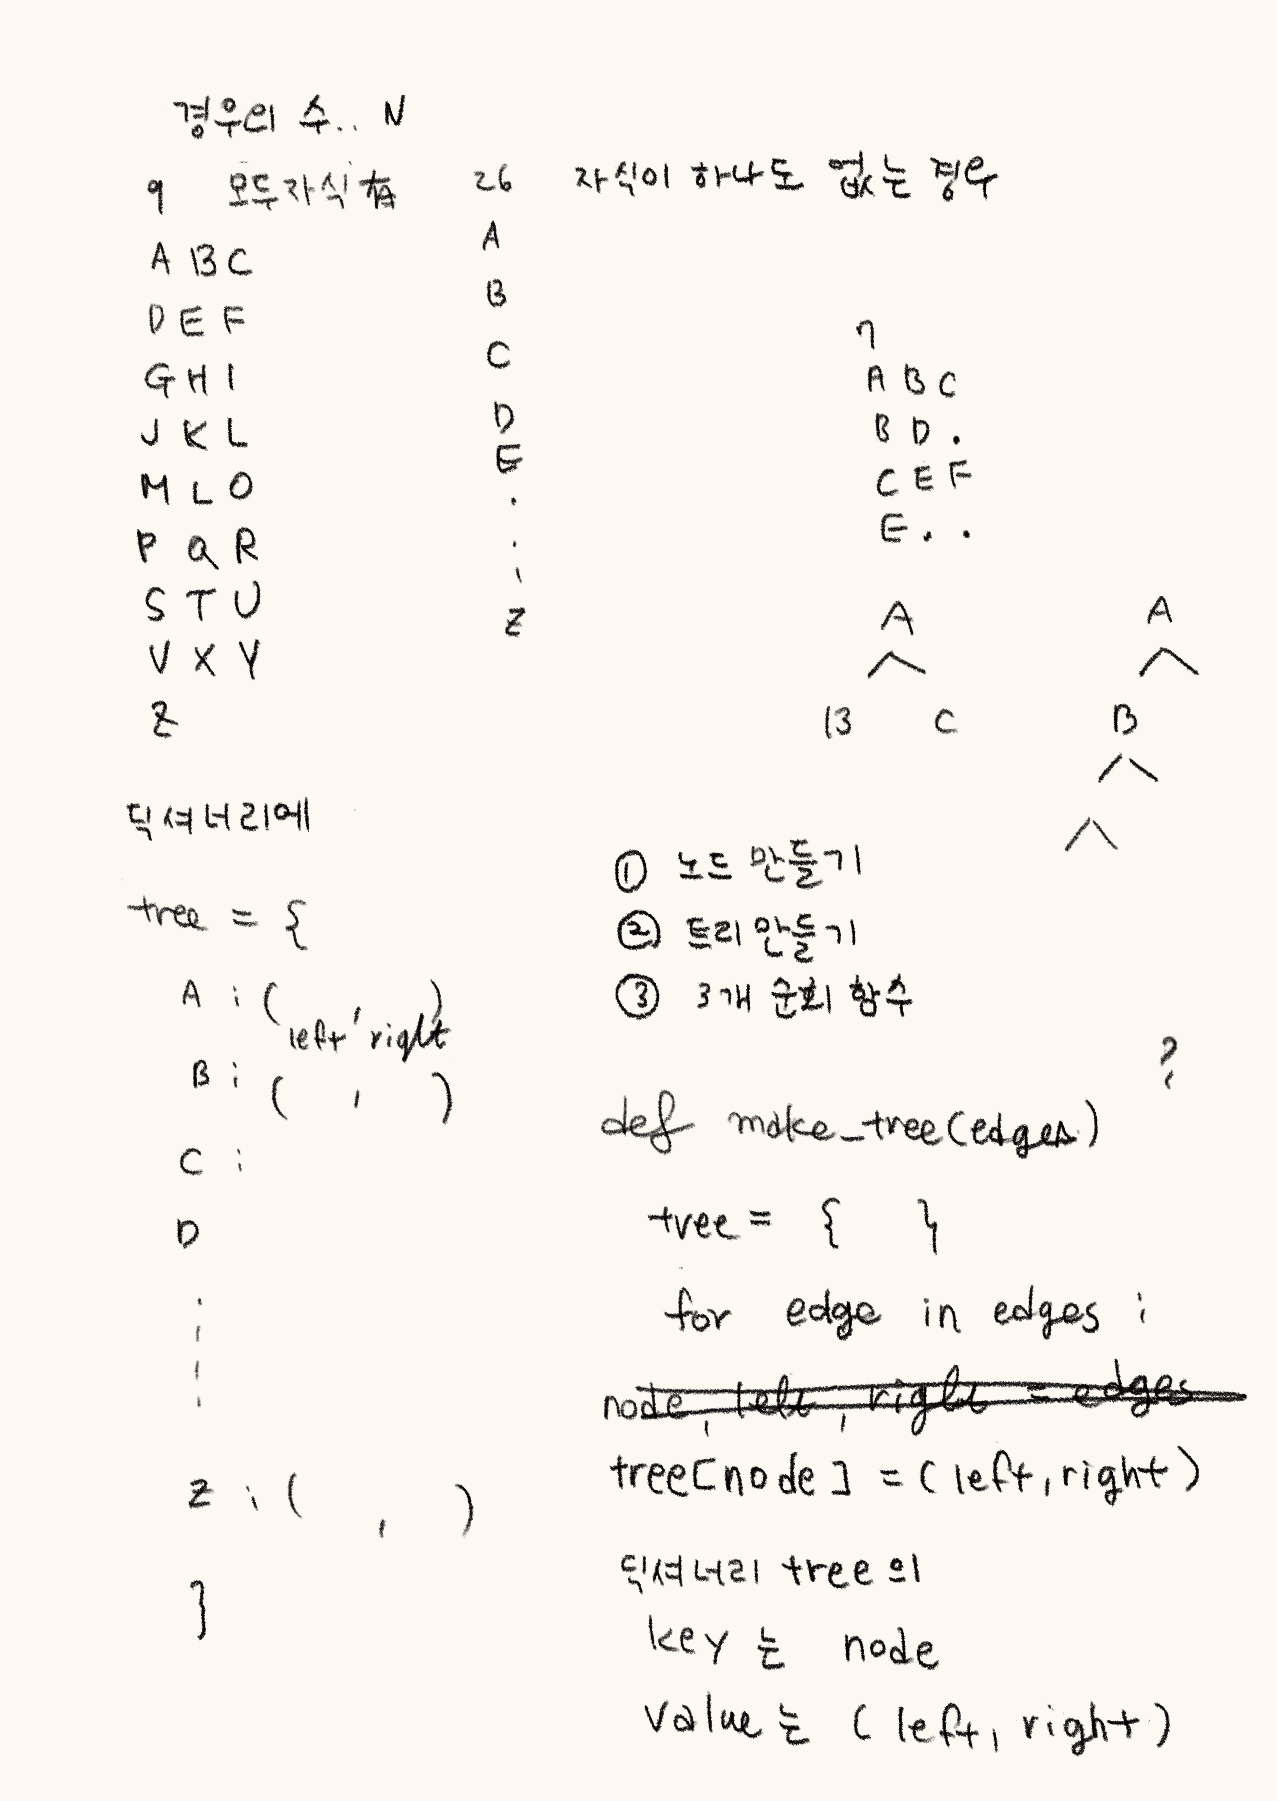 경우의 수.. N
9 모두 자식 有
A B C
D E F
G H I
J K L
M L O
P Q R
S T U
V X Y
Z
26 자식이 하나도 없는 경우
A
B
C
D
E
.
.
.
Z
7
A B C
B D .
C E F
E . .
A
B C
A
B
딕셔너리에
tree = {
A : ( , )
left right
B : ( , )
C :
D
Z : ( , )
}
① 노드 만들기
② 트리 만들기
③ 3개 순회 함수
?
def make_tree(edges)
tree = { }
for edge in edges :
node, left, right = edges
tree[node] = (left, right)
딕셔너리 tree 의
key 는 node
value 는 (left, right)